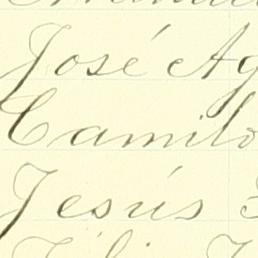 José Ag
Camilo
Jesús